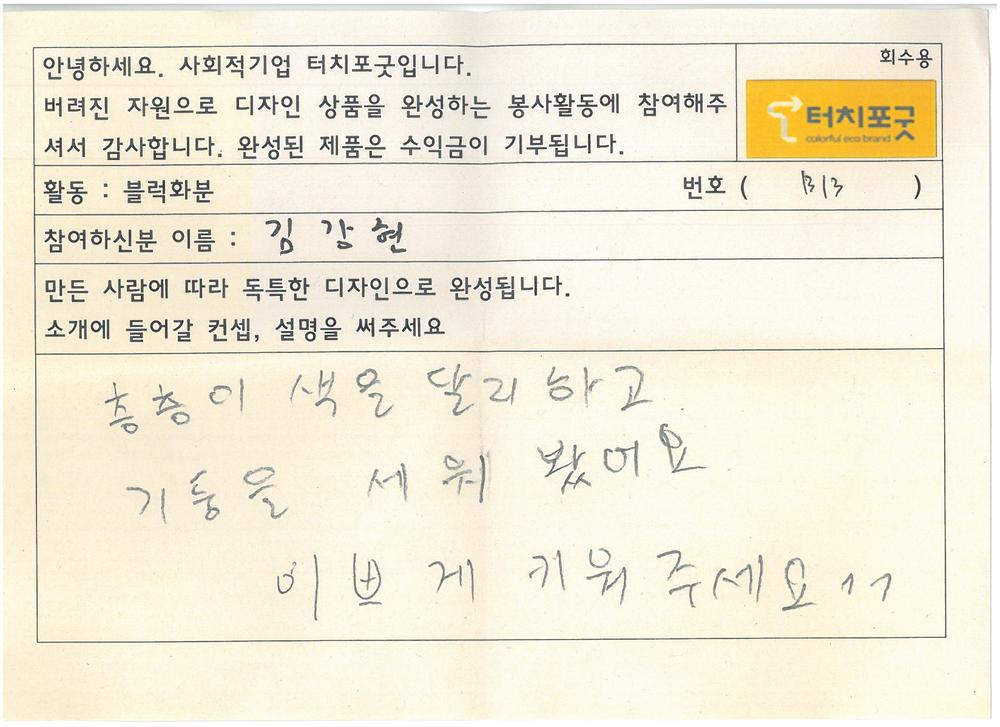 회수용
안녕하세요. 사회적기업 터치포굿입니다.
버려진 자원으로 디자인 상품을 완성하는 봉사활동에 참여해주
셔서 감사합니다. 완성된 제품은 수익금이 기부됩니다.
터치포굿
colorful eco brand
활동 : 블럭화분
번호 ( B13 )
참여하신분 이름 : 김강현
만든 사람에 따라 독특한 디자인으로 완성됩니다.
소개에 들어갈 컨셉, 설명을 써주세요
층층이 색을 달리하고
기둥을 세워 봤어요
이쁘게 키워주세요^^